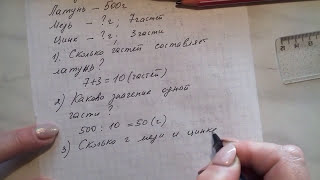 Латунь – 500г
Медь – ?г, 7частей
Цинк – ?г, 3части
1) Сколько частей составляет
латунь?
7+3=10(частей)
2) Каково значение одной
части?
500:10=50(г)
3) Сколько г меди и цинка